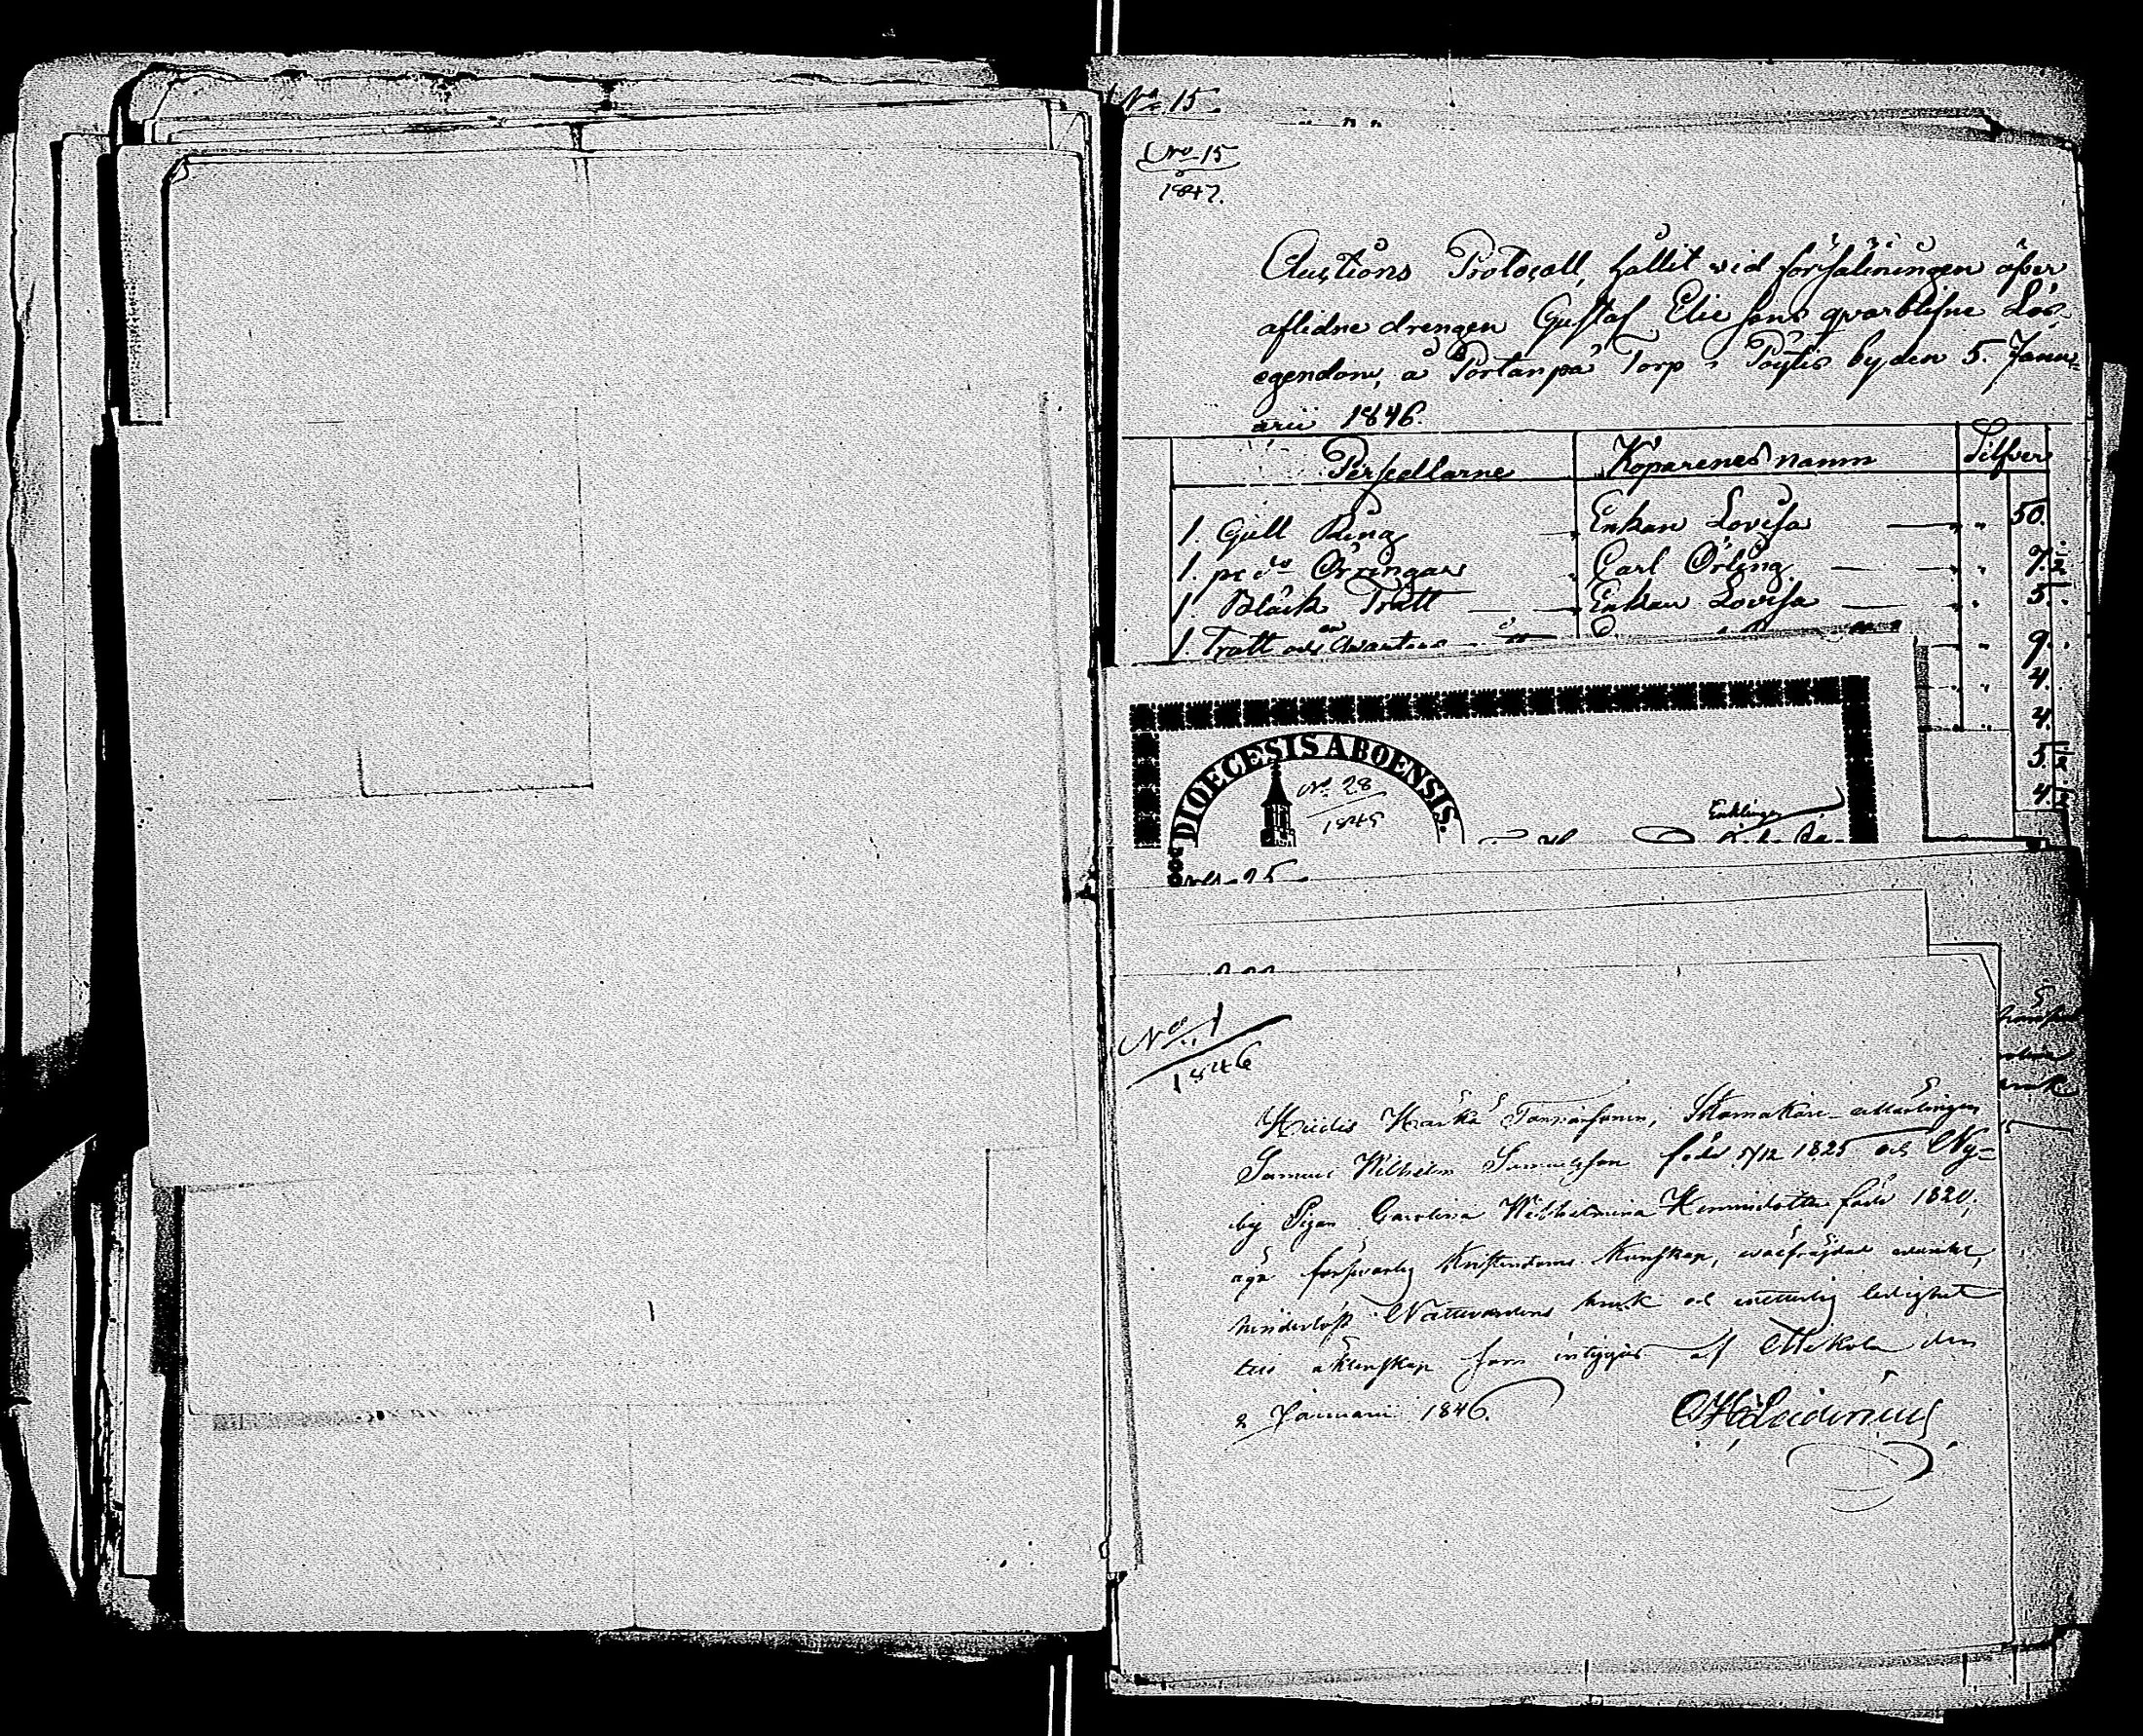 No 15
No 15
1847.
Auctions Protocoll, hållit vid försäljningen öfver
aflidne drengen Gustaf Elie sons qvarblifne Lös-
egendom, å Portanpä Torp i Pöytis by den 5. Janu=
arii 1846.
Persedlarne Köparenes namn Silfver
1. Gull Ring Enkan Lovisa 50.
1. pr do Örringar Carl Örling 7. 1/2
1. Bläck Tratt Enkan Lovisa 5.
1. Tratt och 9.
4.
4.
5. 1/2
4. 1/2
DIOECESIS ABOENSIS.
No 28
1845
No 25
No. 1
1846
Hiidis Härkä Torparsonen, Skomakare-
Samuel Wilhelm Samuelsson född 5/12 1825 och Ny=
by Pigan Carolina Wilhelmina Henricsdotter född 1820,
äga försvarlig Kristendoms Kunskap, välfräjdad vandel,
hinderlöst Nattvardens bruk och ledighet
till äktenskap som intygas af Mekola den
2 Januarii 1846.